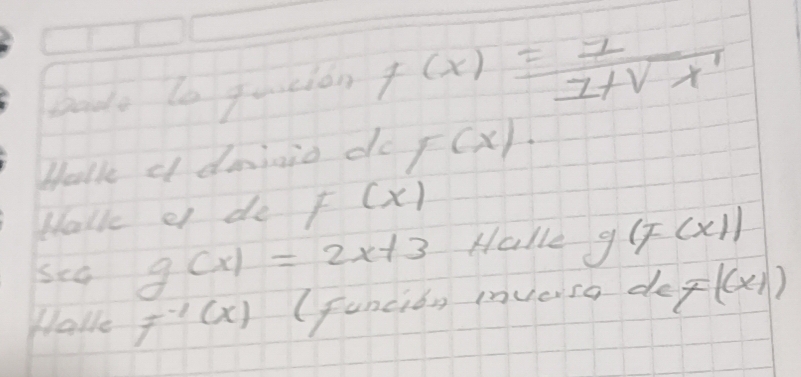 Dada la función f(x) = 1/(1+√x)
Halle el dominio de f(x).
Halle el de f(x)
sea g(x) = 2x+3 Halle g(f(x))
Halle f⁻¹(x) (función inversa de f(x))